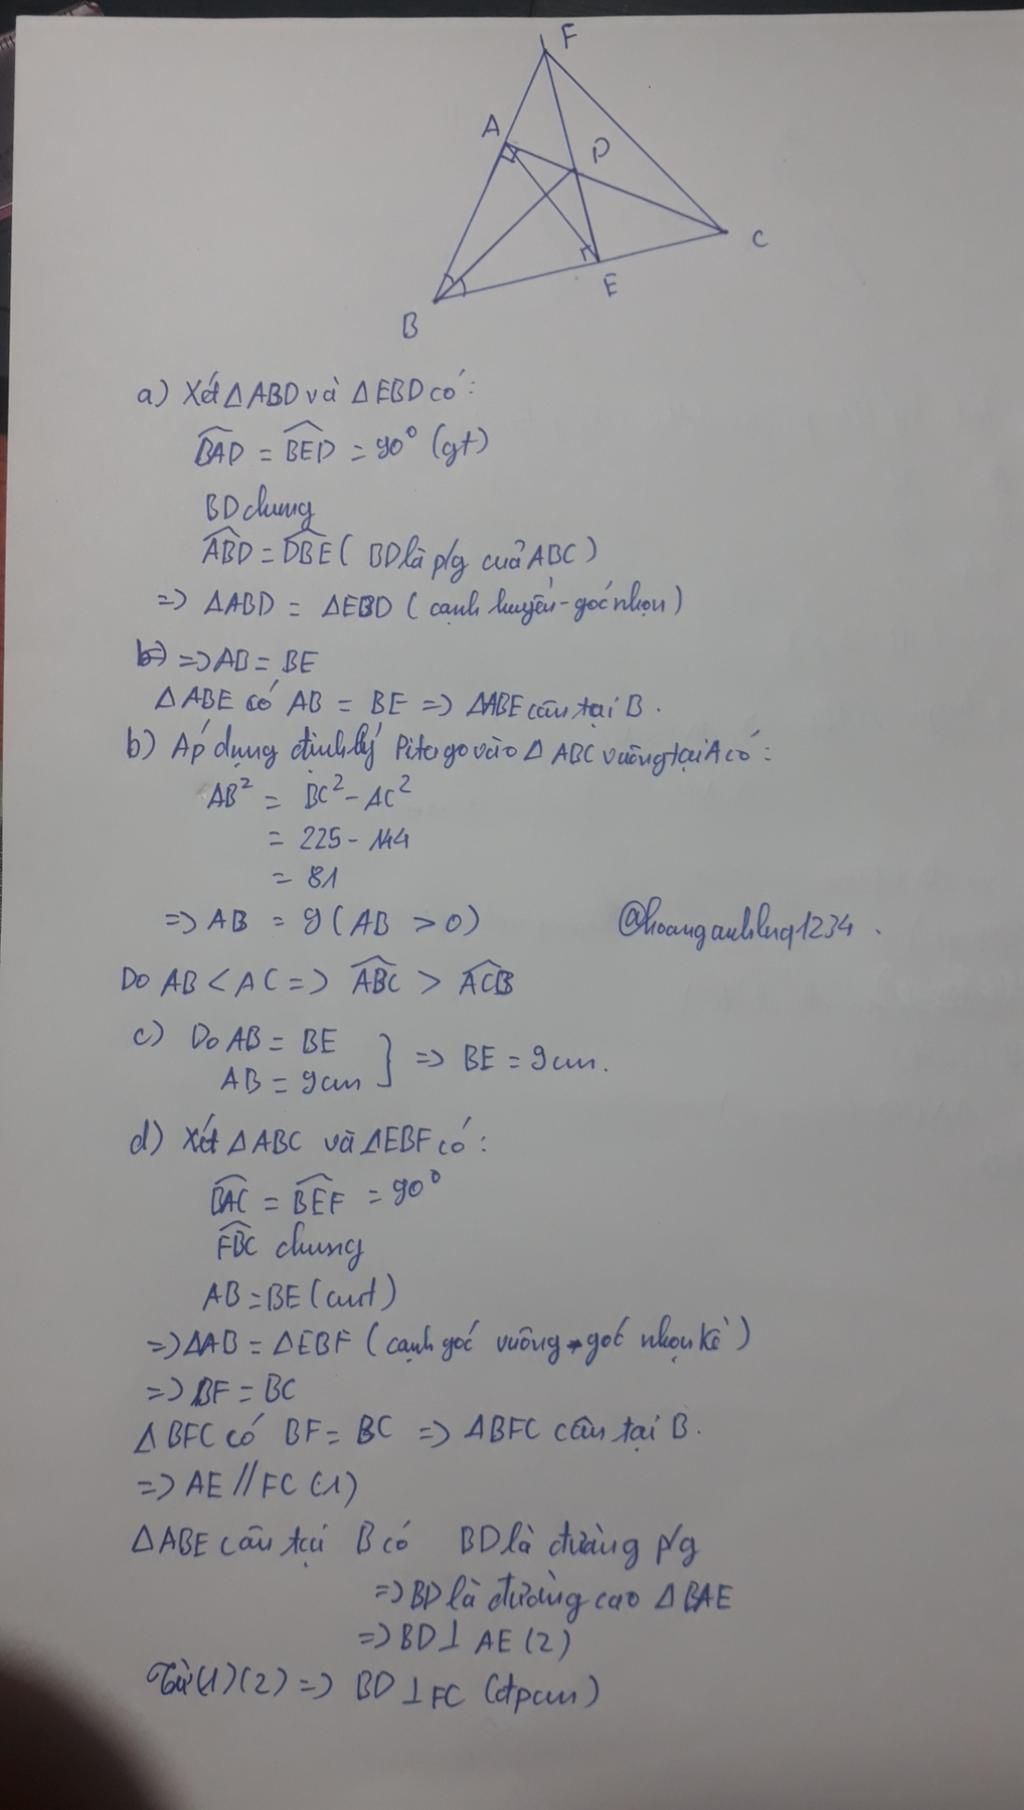 F
A
D
C
E
B
a) Xét ΔABD và ΔEBD có:
$\widehat{BAD}$ = $\widehat{BED}$ = 90° (gt)
BD chung
$\widehat{ABD}$ = $\widehat{DBE}$ ( BD là p/g của ABC )
=> ΔABD = ΔEBD ( cạnh huyền - góc nhọn )
=> AB = BE
ΔABE có AB = BE => ΔABE cân tại B.
b) Áp dụng định lý Pitago vào Δ ABC vuông tại A có:
AB² = BC² - AC²
= 225 - 144
= 81
=> AB = 9 ( AB > 0)
@hoanganhlug1234.
Do AB < AC => $\widehat{ABC}$ > $\widehat{ACB}$
c) Do AB = BE
AB = 9cm } => BE = 9cm.
d) Xét ΔABC và ΔEBF có:
$\widehat{BAC}$ = $\widehat{BEF}$ = 90°
$\widehat{FBC}$ chung
AB = BE (cmt)
=> ΔAB = ΔEBF ( cạnh góc vuông - góc nhọn kề )
=> BF = BC
Δ BFC có BF = BC => ΔBFC cân tại B.
=> AE // FC (1)
ΔABE cân tại B có BD là đường p/g
=> BD là đường cao Δ BAE
=> BD ⊥ AE (2)
Từ (1) (2) => BD ⊥ FC (đpcm)